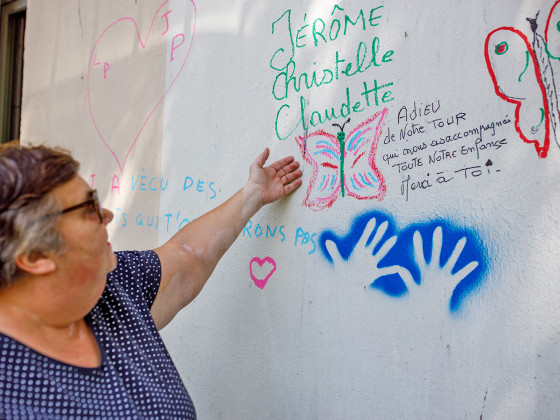 JP
JP
JÉRÔME
Christelle
Claudette
ADIEU
de Notre TOUR
qui nous as accompagnés
TOUTE NOTRE ENFANCE
Merci à Toi!
A VECU DES
QUIT'O RONS PAS